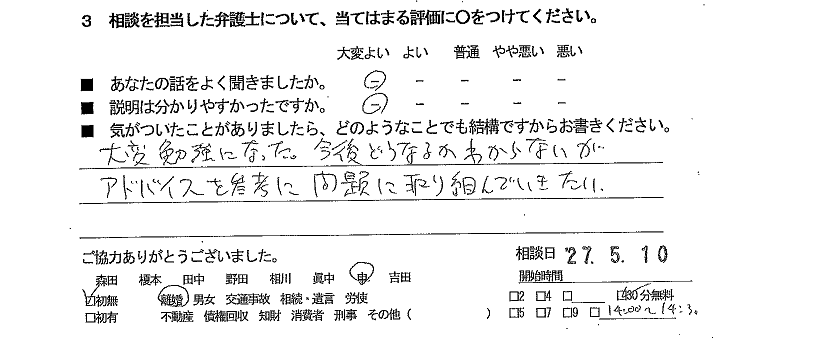 3 相談を担当した弁護士について、当てはまる評価に〇をつけてください。
大変よい よい 普通 やや悪い 悪い
■ あなたの話をよく聞きましたか。 － － － － －
■ 説明は分かりやすかったですか。 － － － － －
■ 気がついたことがありましたら、どのようなことでも結構ですからお書きください。
大変勉強になった。今後どうなるかわからないが
アドバイスを参考に問題に取り組んでいきたい。
ご協力ありがとうございました。 相談日 '27. 5. 10
森田 榎本 田中 野田 相川 眞中 申 吉田 開始時間
□初無 離婚 男女 交通事故 相続・遺言 労使 □2 □4 □ □30分無料
□初有 不動産 債権回収 知財 消費者 刑事 その他( ) □5 □7 □9 □ 14:00〜14:3